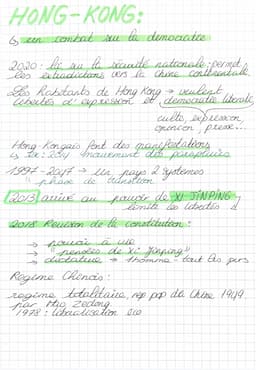 HONG-KONG:
↳ un combat sur la démocratie
2020: loi sur la sécurité nationale: permet
les extraditions vers la Chine continentale.
Les Habitants de Hong Kong → veulent
libertés d'expression et démocratie libérale
culte, expression,
opinion, presse...
Hong Kongais font des manifestations
↳ ex: 2014 mouvement des parapluies
1997-2047 → un pays 2 systèmes
phase de transition
2013 arrivé au pouvoir de XI JINPING
↳ limite les libertés
2018 Revision de la constitution:
→ pouvoir à vie
→ pensées de "xi Jinping"
→ dictature → 1 homme tout les purs
Regime Chinois:
regime totalitaire, rep pop da Chine 1949
par Mao Zedong
1978: libéralisation eco